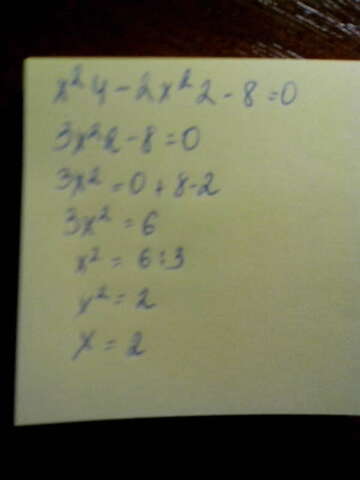 x²4-2x²2-8=0
3x²2-8=0
3x²=0+8-2
3x²=6
x²=6:3
x²=2
x=2